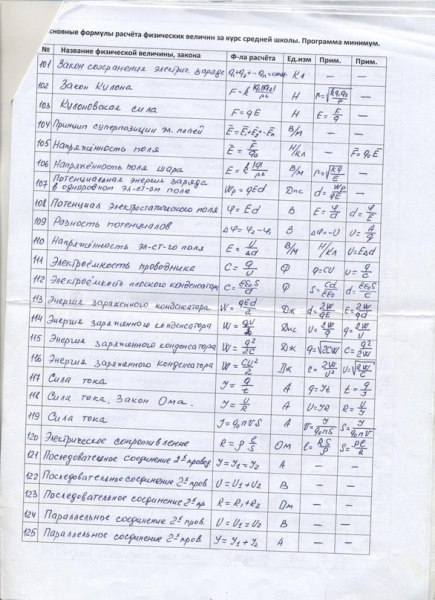 сновные формулы расчёта физических величин за курс средней школы. Программа минимум.
№ Название физической величины, закона Ф-ла расчёта Ед.изм Прим. Прим.
101 Закон сохранения электрич. заряда q₁+q₂+···qₙ=const Кл — —
102 Закон Кулона F=k |q₁||q₂|/r² Н r=√(kq₁q₂/F) —
103 Кулоновская сила F=qE Н E=F/q —
104 Принцип суперпозиции эл. полей E̅=E̅₁+E̅₂+··E̅ₙ В/м — —
105 Напряжённость поля E̅=F̅/q₀ Н/кл — F̅=q₀E̅
106 Напряжённость поля шара E=k |q|/r² В/м r=√(kq/E) —
107 Потенциальная энергия заряда
в однородном эл-ст-ом поле Wp=qEd Дж d=Wp/qE —
108 Потенциал электростатического поля φ=Ed В E=φ/d d=φ/E
109 Разность потенциалов Δφ=φ₂-φ₁ В Δφ=-U U=A/q
110 Напряжённость эл-ст-го поля E=U/Δd В/м Н/кл U=EΔd
111 Электроёмкость проводника C=q/U Ф q=CU U=q/C
112 Электроёмкость плоского конденсатора C=εε₀S/d Ф S=Cd/εε₀ d=εε₀S/C
113 Энергия заряженного конденсатора W=qEd/2 Дж d=2W/qE E=2W/qd
114 Энергия заряженного конденсатора W=qU/2 Дж U=2W/q q=2W/U
115 Энергия заряженного конденсатора W=q²/2C Дж q=√2CW C=q²/2W
116 Энергия заряженного конденсатора W=CU²/2 Дж C=2W/U² U=√(2W/C)
117 Сила тока I=q/t А q=It t=q/I
118 Сила тока, Закон Ома. I=U/R А U=IR R=U/I
119 Сила тока I=q₀nVS А V=I/q₀nS S=I/q₀nV
120 Электрическое сопротивление R=ρ ℓ/S Ом ℓ=RS/ρ S=ρℓ/R
121 Последовательное соединение 2ˣ провод I=I₁=I₂ А — —
122 Последовательное соединение 2ˣ пров U=U₁+U₂ В — —
123 Последовательное соединение 2ˣ пр. R=R₁+R₂ Ом — —
124 Параллельное соединение 2ˣ пров. U=U₁=U₂ В — —
125 Параллельное соединение 2ˣ пров. I=I₁+I₂ А — —